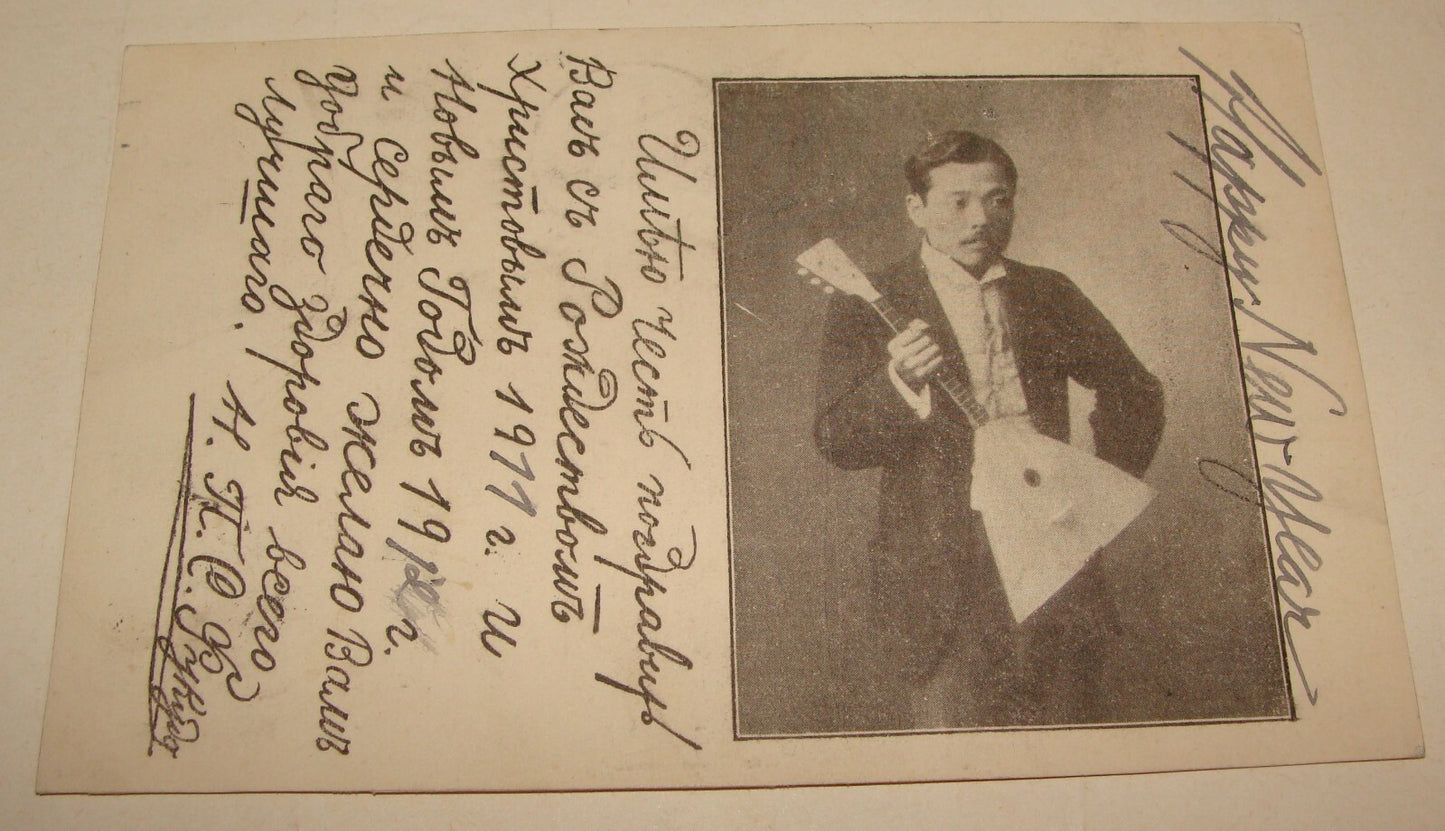 Happy New-Year
Имѣю честь поздравить
Вамъ съ Рождествомъ
Христовымъ 1911 г. И
Новымъ Годомъ 1912 г.
и сердечно желаю Вамъ
добраго здоровія всего
лучшаго.
Н. П. С.